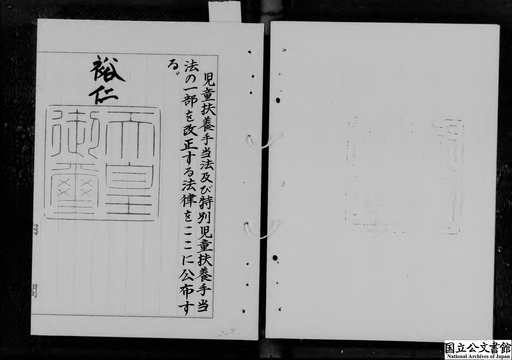 児童扶養手当法及び特別児童扶養手当
法の一部を改正する法律をここに公布す
る。
裕仁
天皇
御璽
国立公文書館
National Archives of Japan